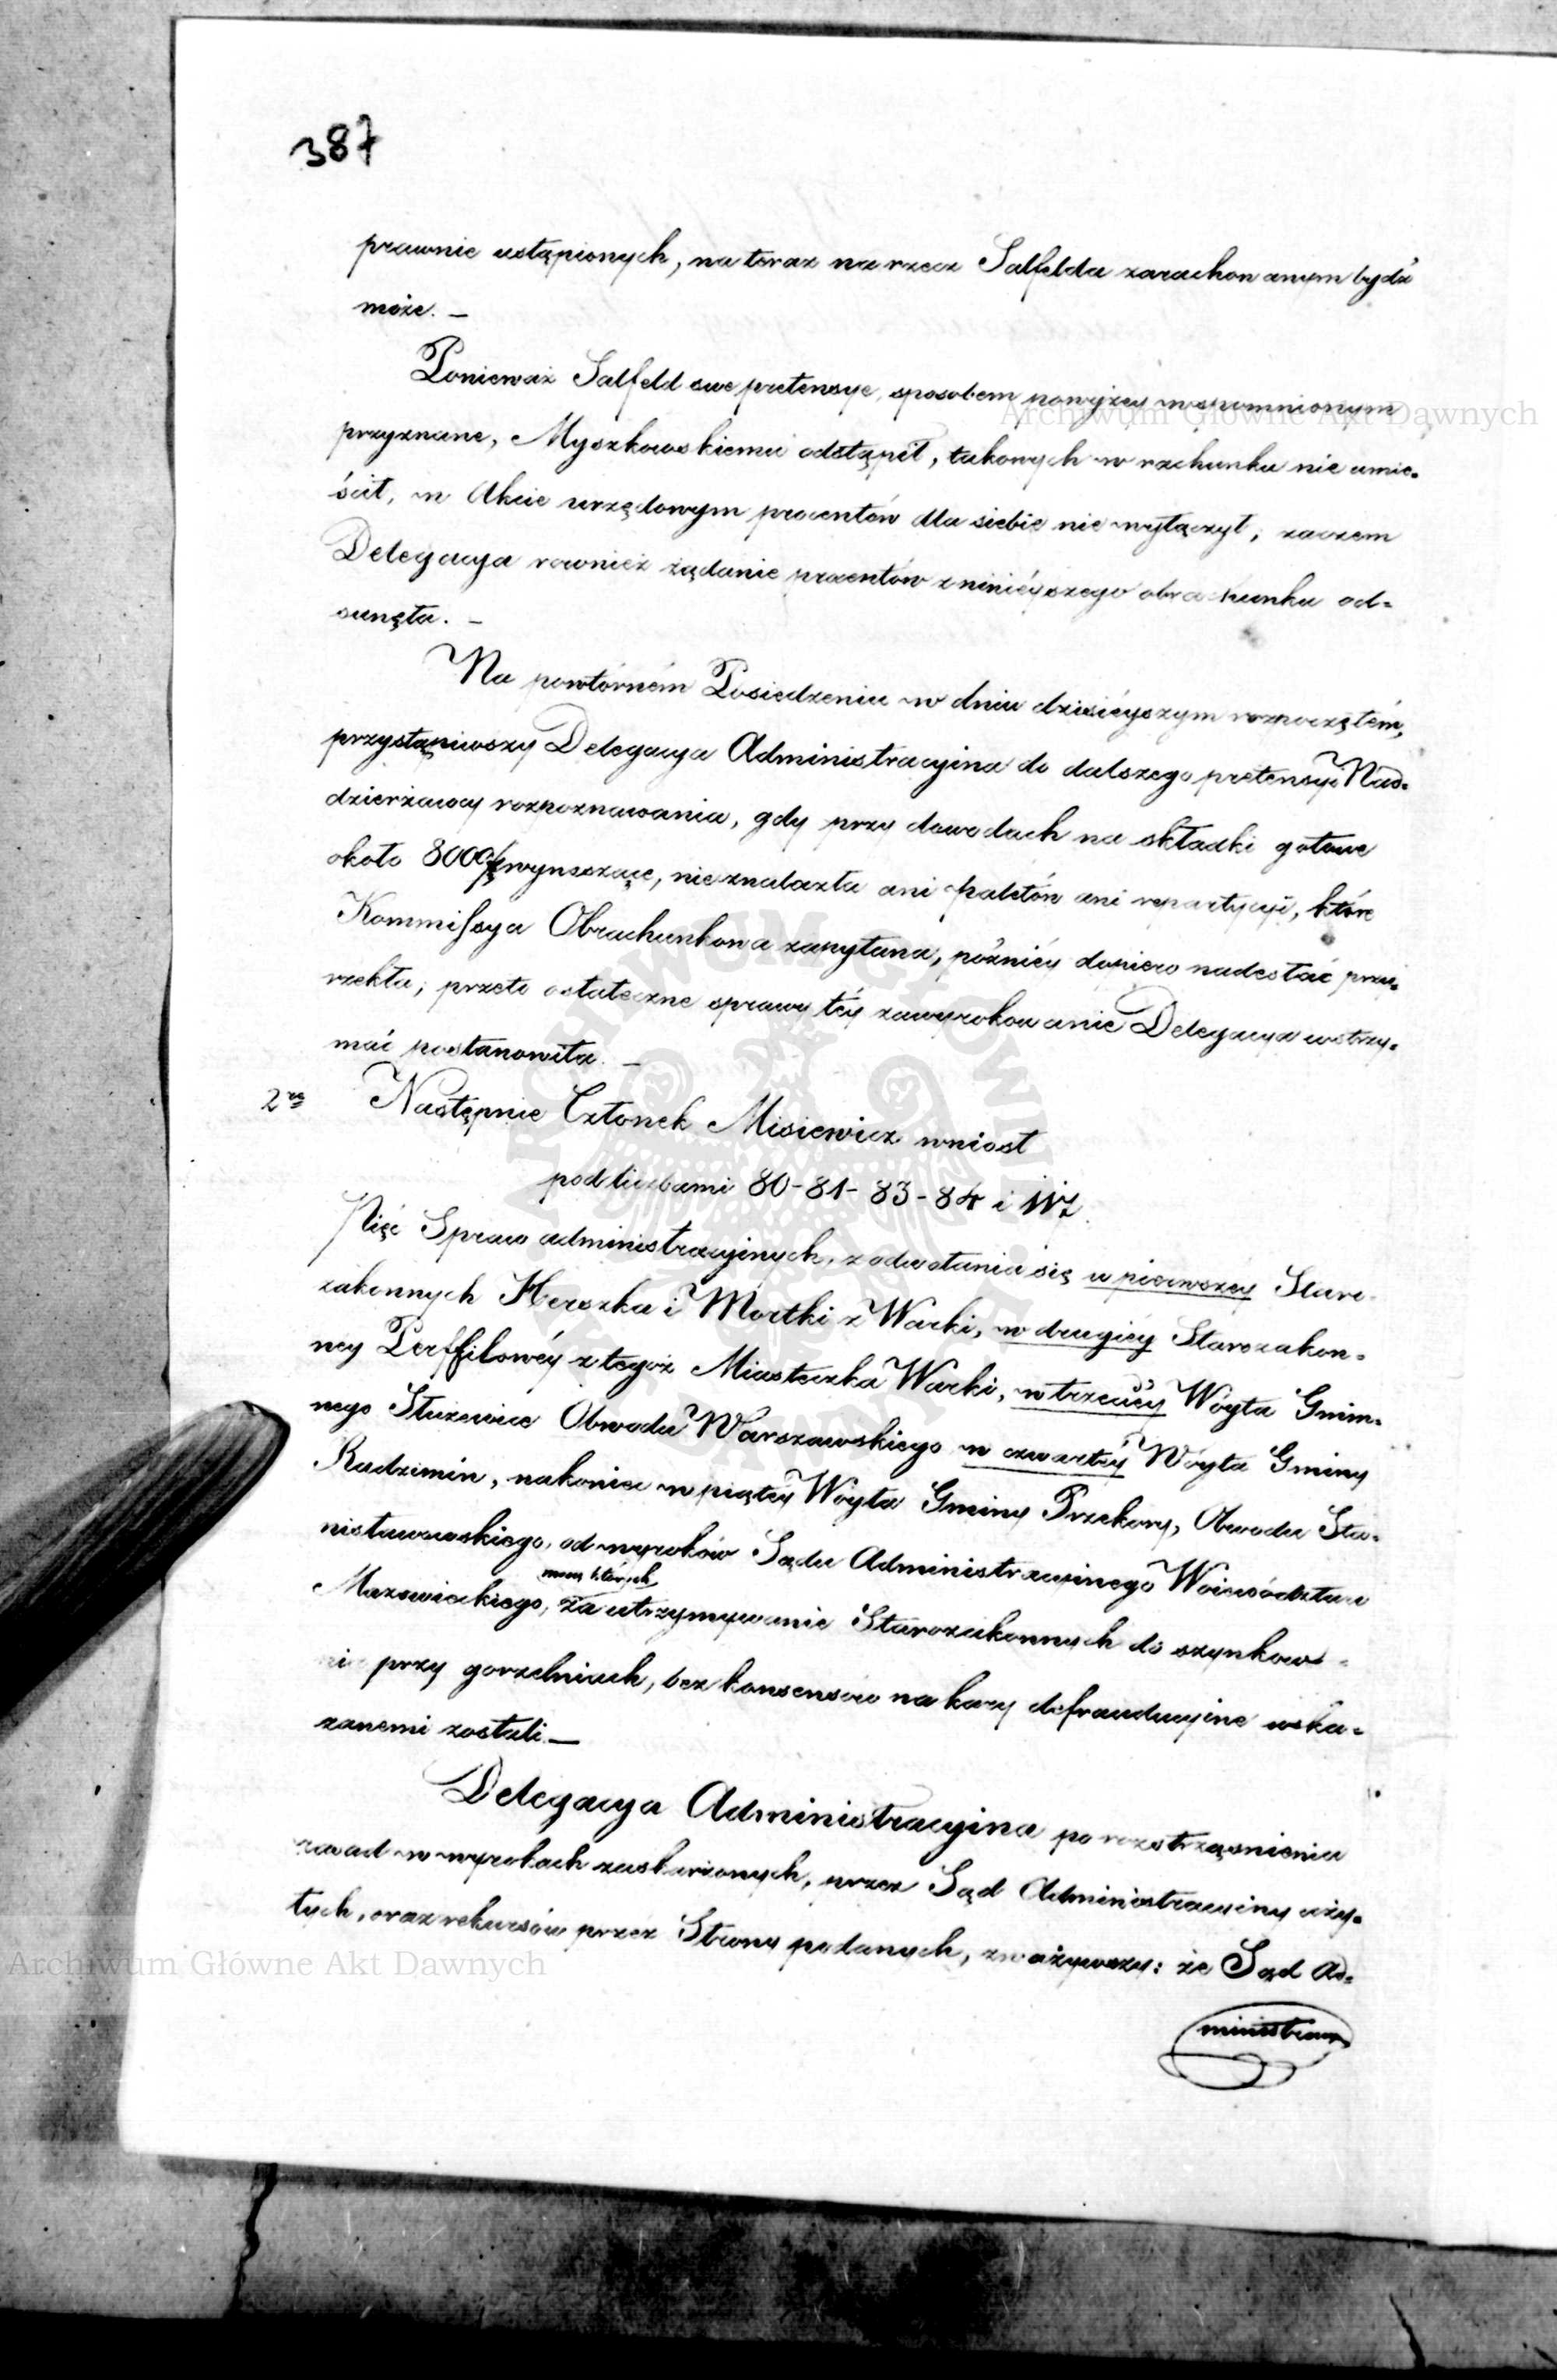 387
prawnie ustąpionych, na teraz na rzecz Salfelda zarachowanym bydź
może. —
Ponieważ Salfeld swe pretensye, sposobem powyżey wspomnionym
przyznane, Myszkowskiemu odstąpił, takowych w rachunku nie umie-
ścił, w Akcie urzędowym procentów dla siebie nie wyłączył; zaczem
Delegacya rownież żądanie procentów z ninieyszego obrachunku od-
sunęła. —
Na powtórném Posiedzeniu w dniu dzisiéyszym rozpoczętém,
przystąpiwszy Delegacya Administracyina do dalszego pretensyi Nad-
dzierżawcy rozpoznawania, gdy przy dowodach na składki gotowe
około 8000 wynoszące, nie znalazła ani paletów ani repartycyi, które
Kommissya Obrachunkowa zapytana, późniéy dopiero nadesłać przy-
rzekła; przeto ostateczne sprawy téy zawyrokowanie Delegacya wstrzy-
mać postanowiła. —
2re Następnie Członek Misiewicz wniosł
pod liczbami 80-81-83-84 i 117.
Pięć Spraw administracyinych, z odwołania się w pierwszey Staro-
zakonnych Herszka i Mortki z Warki, w drugiéy Starozakon-
ney Perffilowéy z tegoż Miasteczka Warki, w trzeciéy Wóyta Gmin-
nego Służewice Obwodu Warszawskiego w czwartéy Wóyta Gminy
Radzimin, nakoniec w piątéy Wóyta Gminy Przekory, Obwodu Sta-
nisławowskiego, od wyroków Sądu Administracyinego Woiewództwa
mocą których
Mazowieckiego, za utrzymywanie Starozakonnych do szynkowa-
nia przy gorzelniach, bez konsensów na kary defraudacyine wska-
zanemi zostali. —
Delegacya Administracyina po roztrząśnieniu
zasad w wyrokach zaskarżonych, przez Sąd Administracyiny uży-
tych, oraz rekursów przez Strony podanych, zważywszy: że Sąd Ad-
ministracyi
Archiwum Główne Akt Dawnych
Archiwum Główne Akt Dawnych